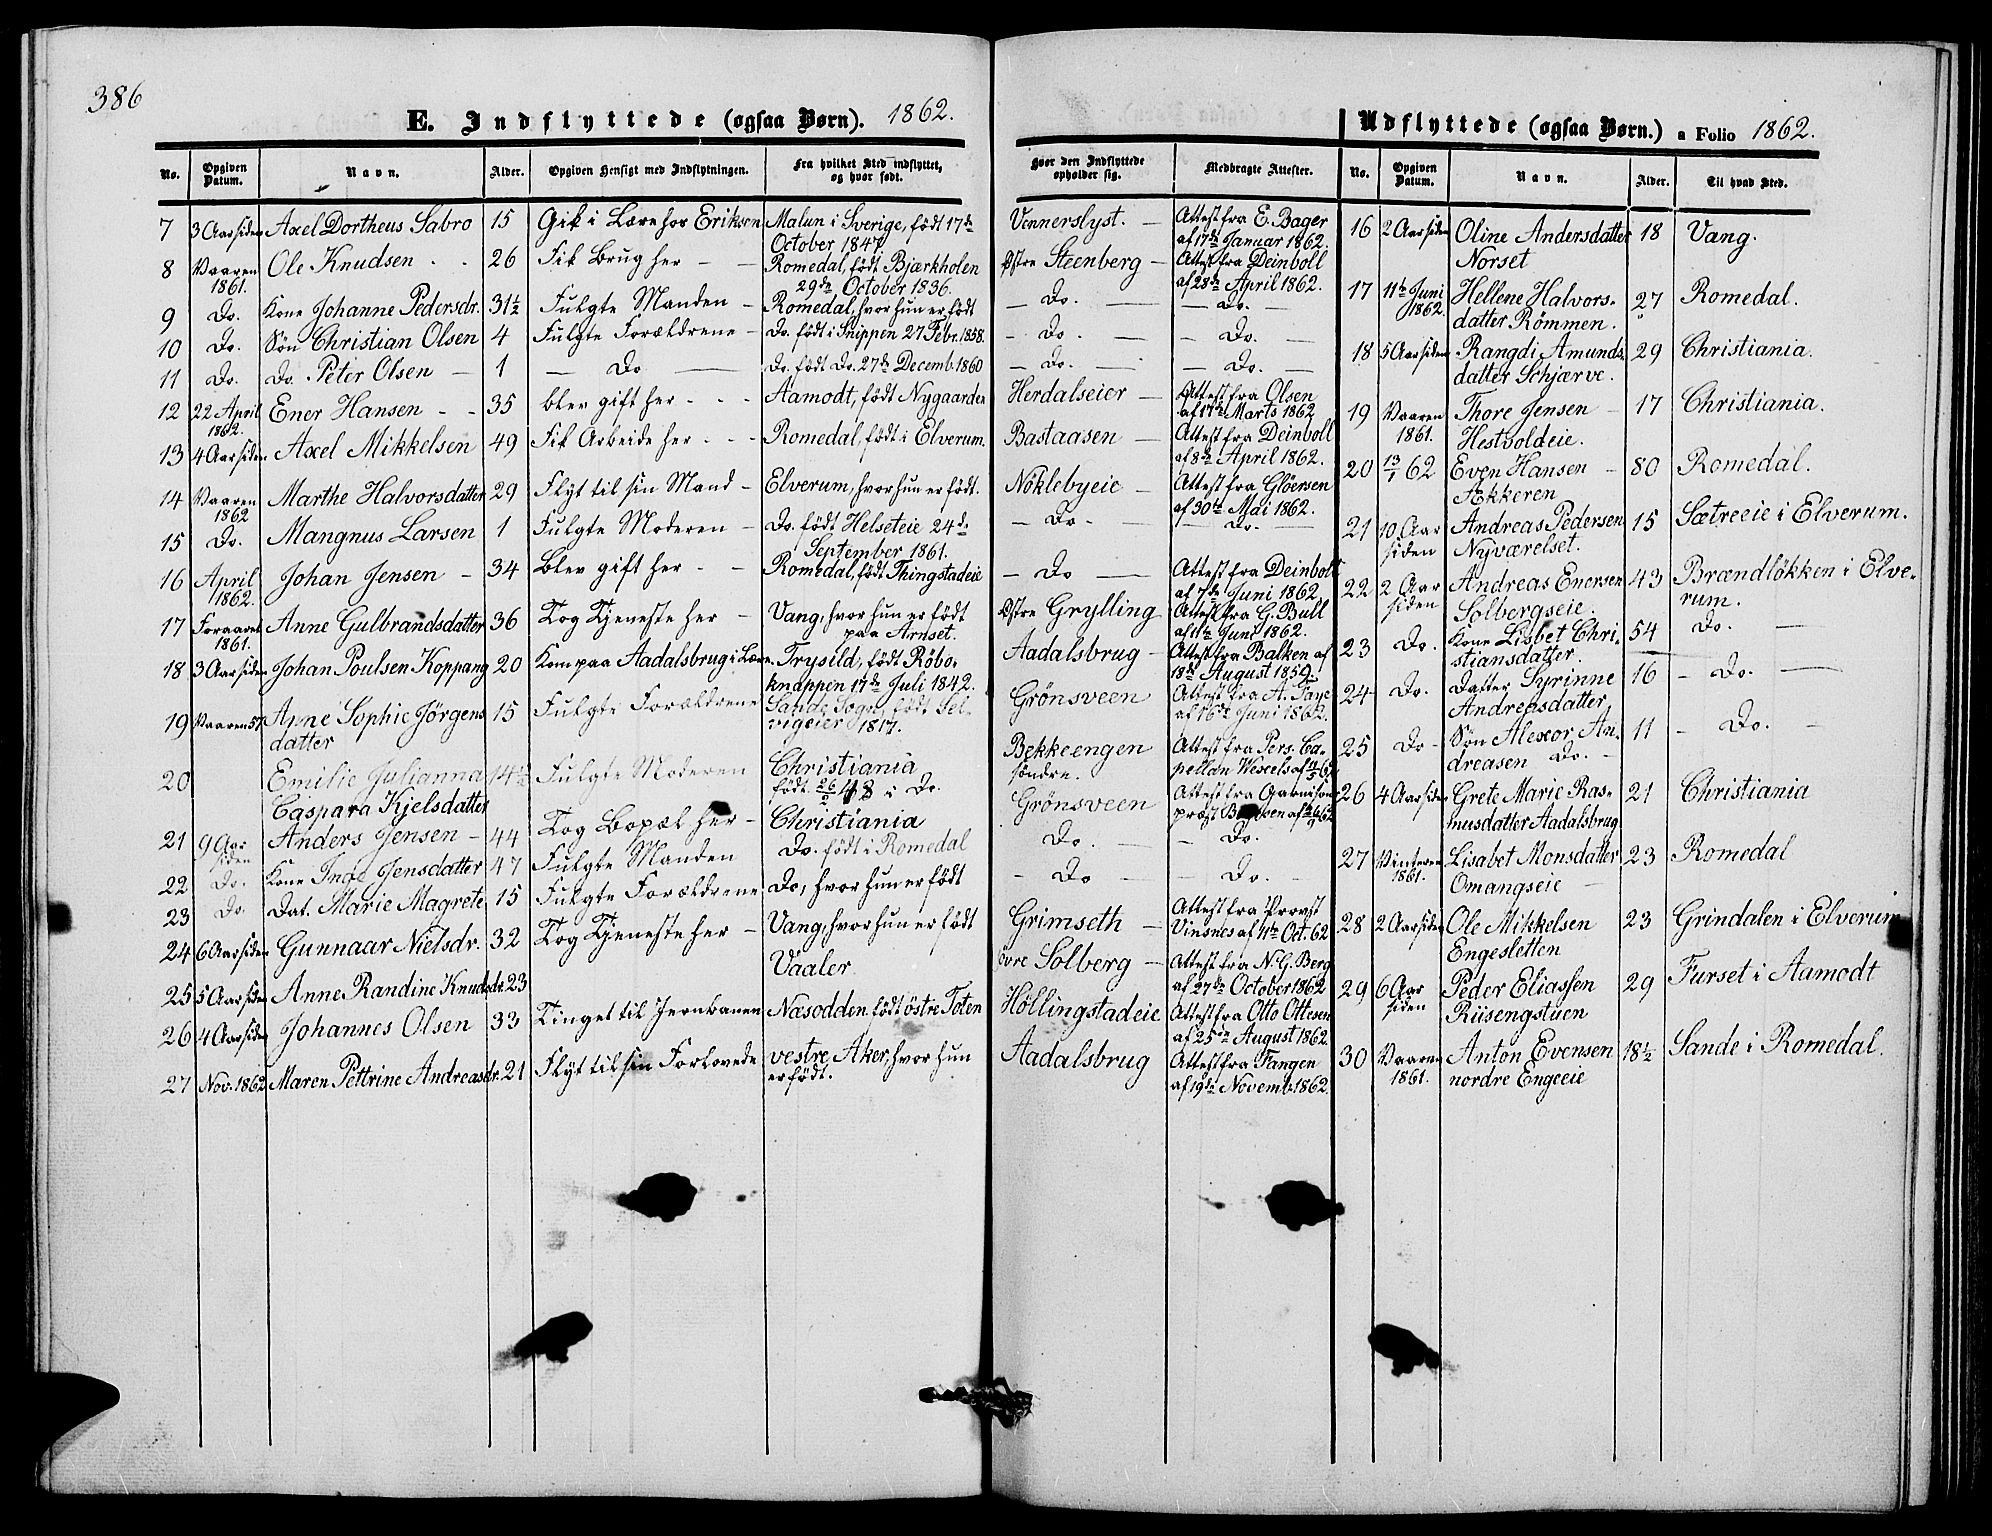 386
E. Indflyttede (ogsaa Børn). 1862.
No. Opgiven Datum. Navn. Alder. Opgiven Hensigt med Indflytningen. Fra hvilket Sted indflyttet, og hvor født. Hvor den Indflyttede opholder sig. Medbragte Attester.
7 3 Aar siden Axel Dortheus Sabro 15 Gik i Lære hos Eriksen Malun i Sverige, født 17de October 1847 Vennerslyst. — Attest fra E. Bager af 17de Januar 1862.
8 Vaaren 1861. Ole Knudsen 26 Fik Brug her — Romedal, født Bjærkholen 29de October 1836. Østre Steenberg — Attest fra Deinboll af 28de April 1862.
9 Do. Kone Johanne Pedersdr. 31½ Fulgte Manden — Romedal, hvor hun er født — Do. — — Do. —
10 Do. Søn Christian Olsen 4 Fulgte Forældrene — Do. født i Snippen 27 Febr. 1858. — Do. — — Do. —
11 Do. Do. Peter Olsen — 1 — Do — Do. født Do. 27de Decemb. 1860 — Do. — — Do. —
12 22 April 1862. Ener Hansen 35 blev gift her Aamodt, født Nygaarden Herdalseier — Attest fra Olsen af 17de Marts 1862
13 4 Aar siden Axel Mikkelsen 49 Fik Arbeide her Romedal, født i Elverum. Bastaasen — Attest fra Deinboll af 8de April 1862.
14 Vaaren 1862 Marthe Halvorsdatter 29 Flyt til sin Mand — Elverum, hvor hun er født. Nöklebyeie — Attest fra Glöersen af 30te Mai 1862.
15 Do. Mangnus Larsen 1 Fulgte Moderen — Do. født Helseteie 24de September 1861. — Do — — Do. —
16 April 1862. Johan Jensen — 34 Blev gift her Romedal, født Thingstadeie — Do — Attest fra Deinboll af 7de Juni 1862.
17 Foraaret 1861. Anne Gulbrandsdatter 36 Tog Tjeneste her — Vang, hvor hun er født paa Arnset. Østre Grylling Attest fra G. Bull af 11te Juni 1862.
18 3 Aar siden Johan Poulsen Koppang 20 Kom paa Aadalsbrug i Lære. Trysild, født Röboknappen 17de Juli 1842. Aadalsbrug — Attest fra Balken af 18de August 1859.
19 Vaaren 57 Anne Sophie Jörgensdatter 15 Fulgte Forældrene Sande Sogn, født Selvigeier 1817. Grönsveen Attest fra A. Faye af 16de Juni 1862.
20 Emilie Julianna Caspara Kjelsdatter 14½ Fulgte Moderen Christiania født 26/2 48 i Do. Bekkeengen söndre. Attest fra Pers. Capellan Wexels af
21 9 Aar siden Anders Jensen — 44 Tog Bopæl her — Christiania Do. født i Romedal Grönsveen Attest fra Garnisonspræst
22 Do. Kone Inge Jensdatter 47 Fulgte Manden Do, hvor hun er født Do. — — Do.
23 Do. Dat. Marie Magrete 15 Fulgte Forældrene — Do — — Do. —
24 6 Aar siden Gunnaar Nielsdr. 32 Tog Tjeneste her — Vang, hvor hun er født Grimseth — Attest fra Provst Vinsnes af 11te Oct. 62
25 5 Aar siden Anne Randine Knudsdr. 23 Vaaler. övre Solberg — Attest fra N. G. Berg af 27de October 1862
26 4 Aar siden Johannes Olsen 33 Tinget til Jernbanen Næsodden født östre Toten Höllingstadeie Attest fra Otto Ottesen af 25de August 1862.
27 Nov. 1862 Maren Pettrine Andreasdr. 21 Flyt til sin Forlovede vestre Aker, hvor hun er født. Aadalsbrug Attest fra Fangen af 19de Novemb. 1862.
Udflyttede (ogsaa Børn.) a Folio 1862.
No. Opgiven Datum. Navn. Alder. Til hvad Sted.
16 2 Aar siden Oline Andersdatter Norset 18 Vang.
17 11te Juni 1862. Hellene Halvorsdatter Römmen. 27 Romedal.
18 5 Aar siden Rangdi Amundsdatter Schjærve. 29 Christiania.
19 Vaaren 1861. Thore Jensen — Hestvoldeie. 17 Christiania.
20 13/1 62 Even Hansen — Ækkeren 80 Romedal.
21 10 Aar siden Andreas Pedersen Nyværelset. 15 Sætreeie i Elverum.
22 2 Aar siden Andreas Enersen Solbergseie. 43 Brændlökken i Elverum.
23 Do. Kone Lisbet Christiansdatter. 54 Do. —
24 Do. Datter Syrinne Andreasdatter 16 — Do. —
25 Do — Søn Alexor Andreasen Do. — 11 — Do. —
26 4 Aar siden Grete Marie Rasmusdatter Aadalsbrug 21 Christiania
27 Vinteren 1861. Lisabet Monsdatter Omangseie — 23 Romedal
28 2 Aar siden Ole Mikkelsen Engesletten 23 Grindalen i Elverum
29 6 Aar siden Peder Eliassen Riisengstuen 29 Furset i Aamodt
30 Vaaren 1861. Anton Evensen nordre Engeeie 18½ Sande i Romedal.